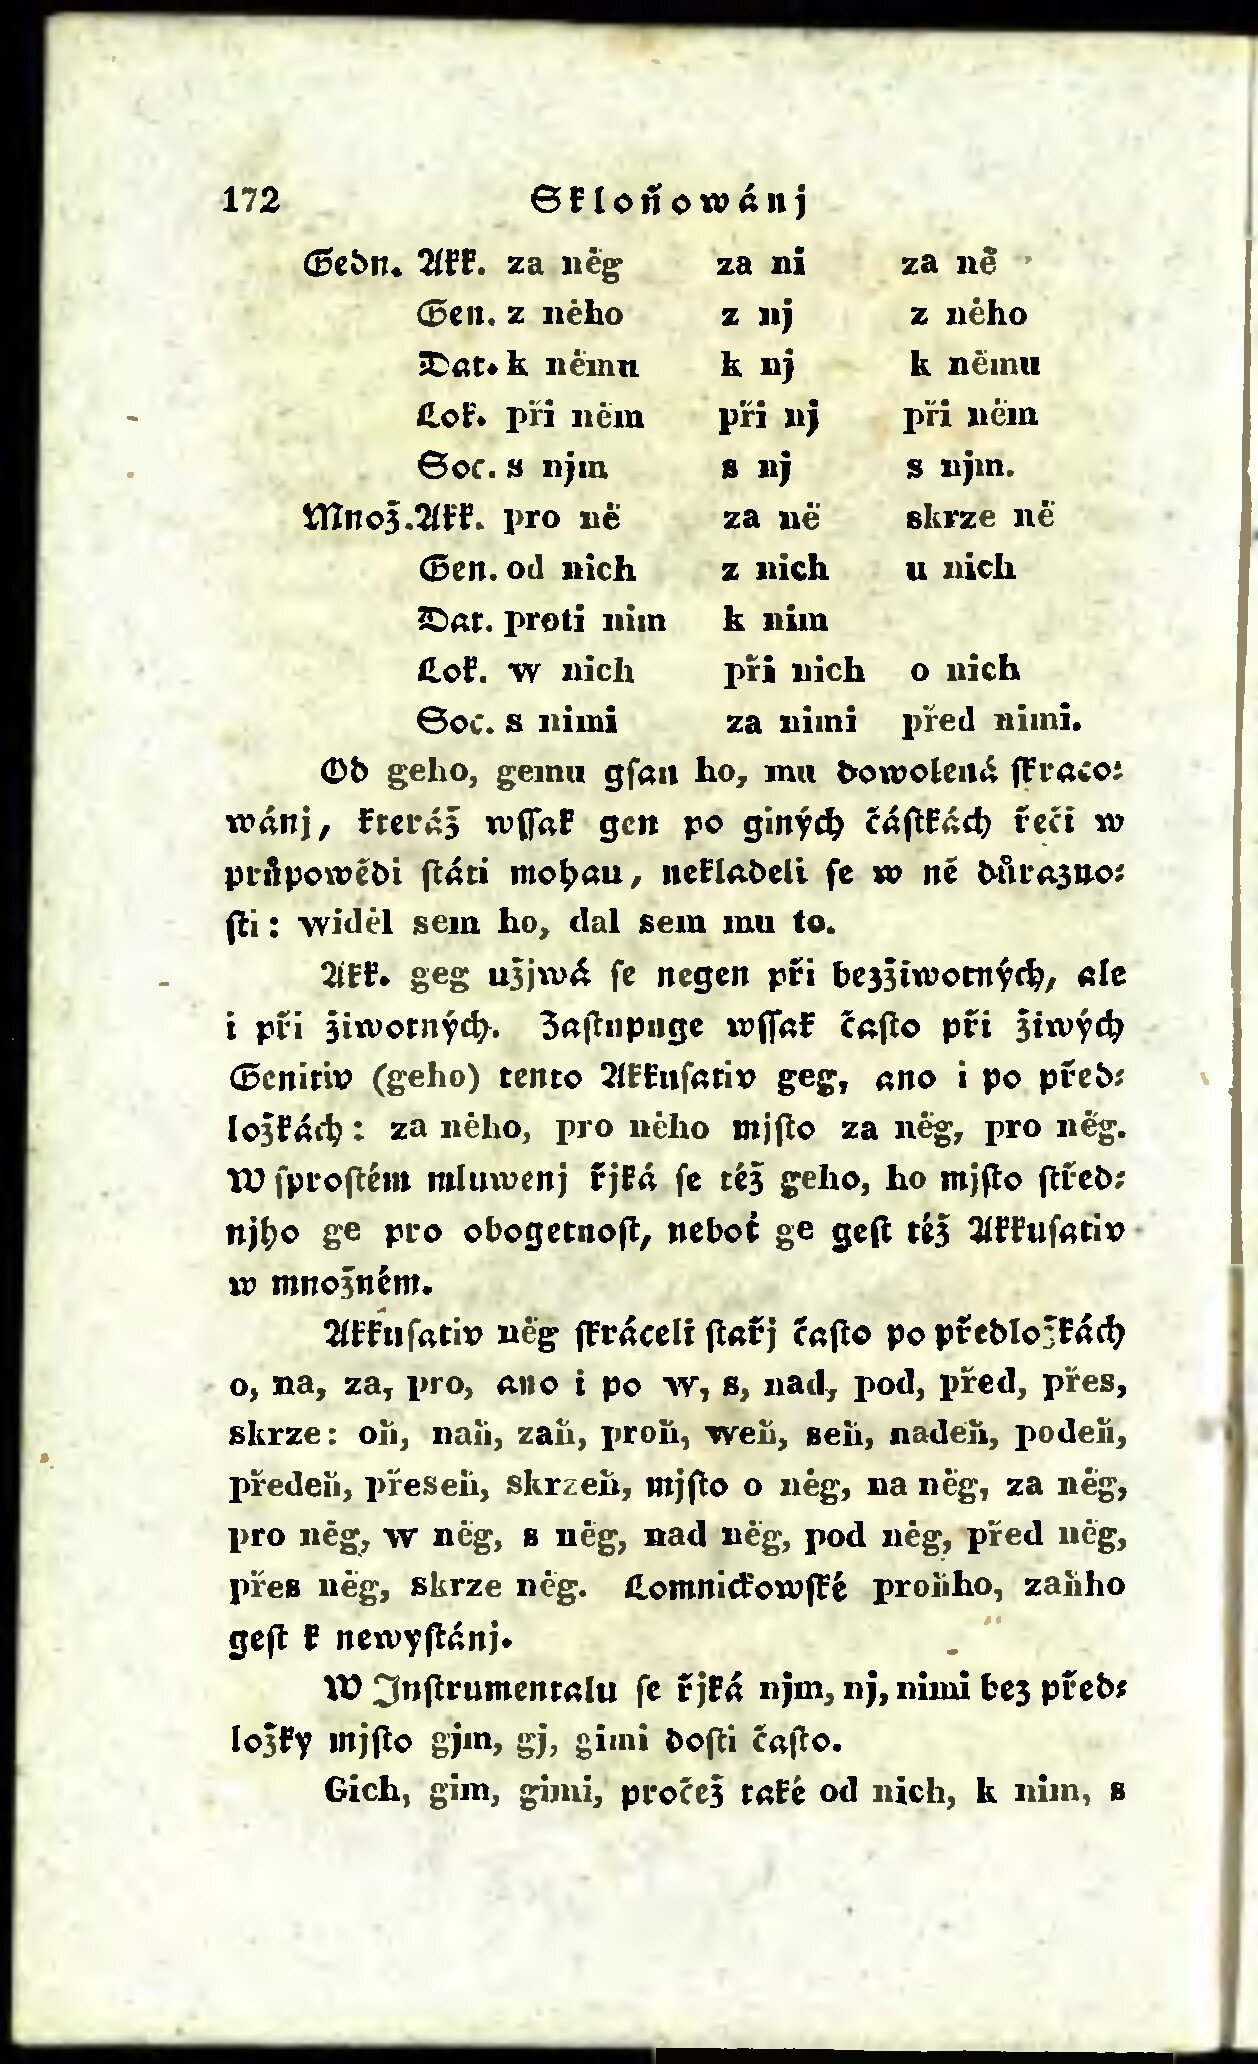 172 Skloňowánj
Gedn. Akk. za něg za ni za ně
Gen. z něho z nj z něho
Dat. k němu k nj k němu
Lok. při něm při nj při něm
Soc. s njm s nj s njm.
Množ. Akk. pro ně za ně skrze ně
Gen. od nich z nich u nich
Dat. proti nim k nim
Lok. w nich při nich o nich
Soc. s nimi za nimi před nimi.
Od geho, gemu gſau ho, mu dowolená ſkraco-
wánj, kteráž wſſak gen po giných čáſtkách řeči w
průpowědi ſtáti mohau, nekladeli ſe w ně důrazno-
ſti: widěl sem ho, dal sem mu to.
Akk. geg užjwá ſe negen při bezžiwotných, ale
i při žiwotných. Zaſtupuge wſſak čaſto při žiwých
Genitiv (geho) tento Akkuſativ geg, ano i po před-
ložkách: za něho, pro něho mjſto za něg, pro něg.
W ſproſtém mluwenj řjká ſe též geho, ho mjſto ſtřed-
njho ge pro obogetnoſt, neboť ge geſt též Akkuſativ
w množném.
Akkuſativ něg ſkráceli ſtařj čaſto po předložkách
o, na, za, pro, ano i po w, s, nad, pod, před, přes,
skrze: oň, naň, zaň, proň, weň, seň, nadeň, podeň,
předeň, přeseň, skrzeň, mjſto o něg, na něg, za něg,
pro něg, w něg, s něg, nad něg, pod něg, před něg,
přes něg, skrze něg. Lomnickowſké proňho, zaňho
geſt k newyſtánj.
W Inſtrumentalu ſe řjká njm, nj, nimi bez před-
ložky mjſto gjm, gj, gimi doſti čaſto.
Gich, gim, gimi, pročež také od nich, k nim, s